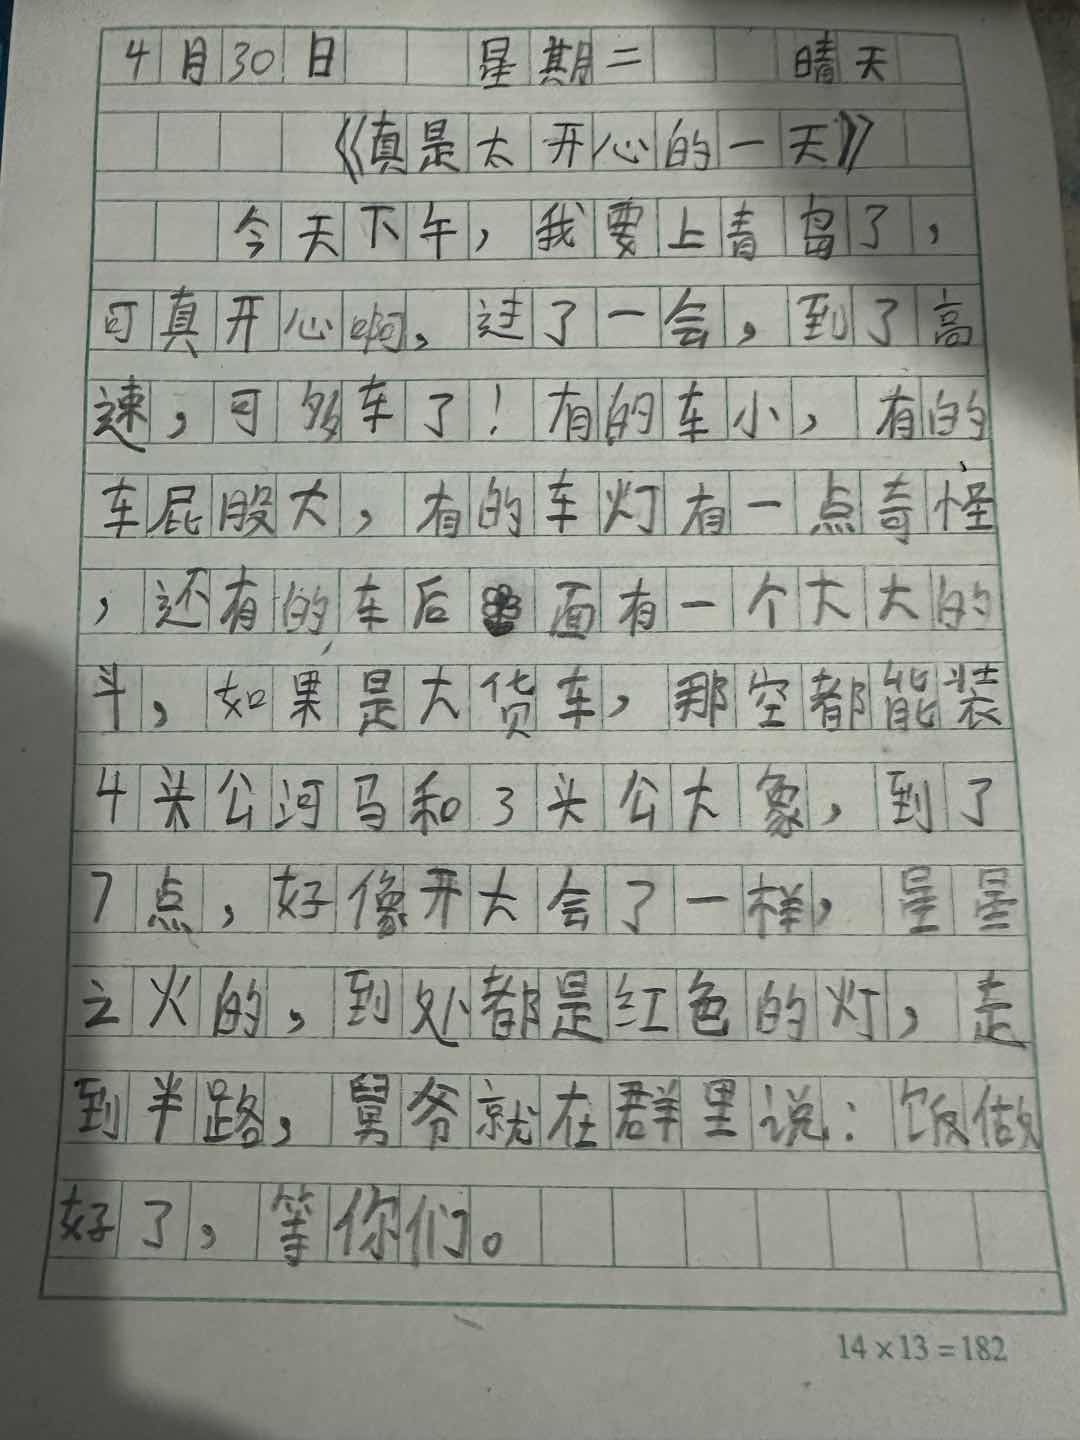 4月30日 星期二 晴天
《真是太开心的一天》
今天下午，我要上青岛了，
可真开心啊，过了一会，到了高
速，可多车了！有的车小，有的
车屁股大，有的车灯有一点奇怪
，还有的车后面有一个大大的
斗，如果是大货车，那空都能装
4头公河马和3头公大象，到了
7点，好像开大会了一样，星星
之火的，到处都是红色的灯，走
到半路，舅爷就在群里说：饭做
好了，等你们。
14×13=182